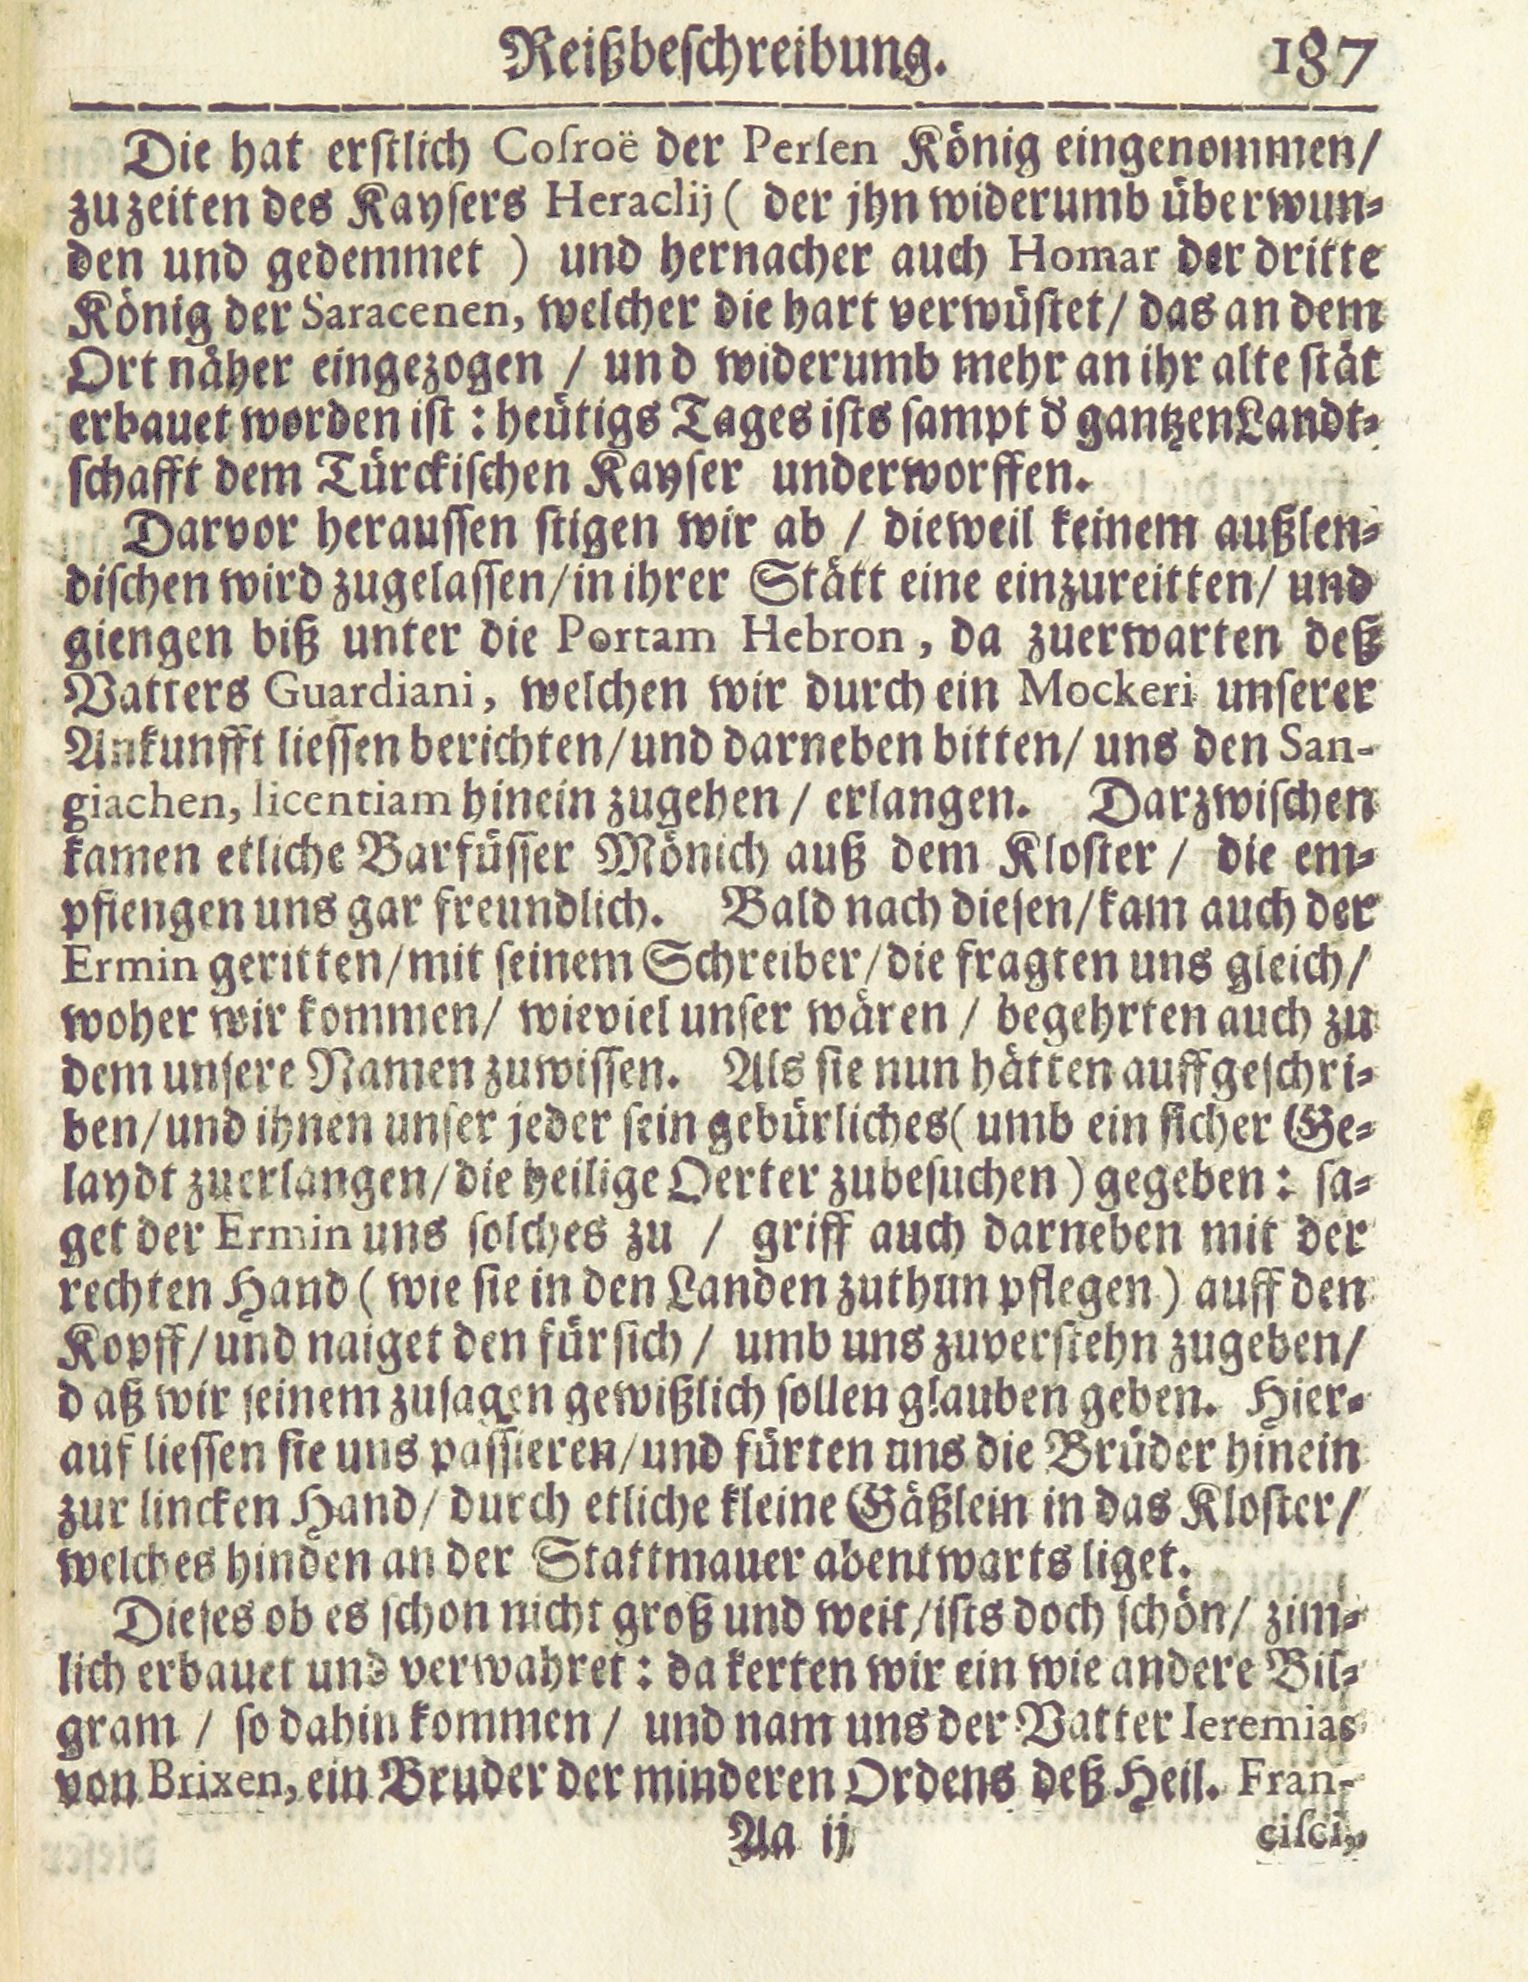 Reißbeschreibung. 187
Die hat erstlich Cosroë der Persen König eingenommen/
zu zeiten des Kaysers Heraclij ( der jhn widerumb überwun-
den und gedemmet ) und hernacher auch Homar der dritte
König der Saracenen, welcher die hart verwüstet/ das an dem
Ort näher eingezogen / und widerumb mehr an ihr alte stät
erbauet worden ist : heütigs Tages ists sampt d gantzen Landt-
schafft dem Türckischen Kayser underworffen.
Darvor heraussen stigen wir ab / dieweil keinem außlen-
dischen wird zugelassen/ in ihrer Stätt eine einzureitten/ und
giengen biß unter die Portam Hebron, da zuerwarten deß
Vatters Guardiani, welchen wir durch ein Mockeri unserer
Ankunfft liessen berichten/ und darneben bitten/ uns den San-
giachen, licentiam hinein zugehen / erlangen. Darzwischen
kamen etliche Barfüsser Mönich auß dem Kloster / die em-
pfiengen uns gar freundlich. Bald nach diesen/ kam auch der
Ermin geritten/ mit seinem Schreiber/ die fragten uns gleich/
woher wir kommen/ wieviel unser wären / begehrten auch zu
dem unsere Namen zuwissen. Als sie nun hätten auffgeschri-
ben/ und ihnen unser jeder sein gebürliches ( umb ein sicher Ge-
laydt zuerlangen/ die heilige Oerter zubesuchen ) gegeben : sa-
get der Ermin uns solches zu / griff auch darneben mit der
rechten Hand ( wie sie in den Landen zuthun pflegen ) auff den
Kopff/ und naiget den für sich / umb uns zuverstehn zugeben/
daß wir seinem zusagen gewißlich sollen glauben geben. Hier-
auf liessen sie uns passieren/ und fürten uns die Brüder hinein
zur lincken Hand/ durch etliche kleine Gäßlein in das Kloster/
welches hinden an der Stattmauer abentwarts liget.
Dieses ob es schon nicht groß und weit/ ists doch schön/ zim-
lich erbauet und verwahret : da kerten wir ein wie andere Bil-
gram / so dahin kommen / und nam uns der Vatter Ieremias
von Brixen, ein Bruder der minderen Ordens deß Heil. Fran-
Aa ij cisci,